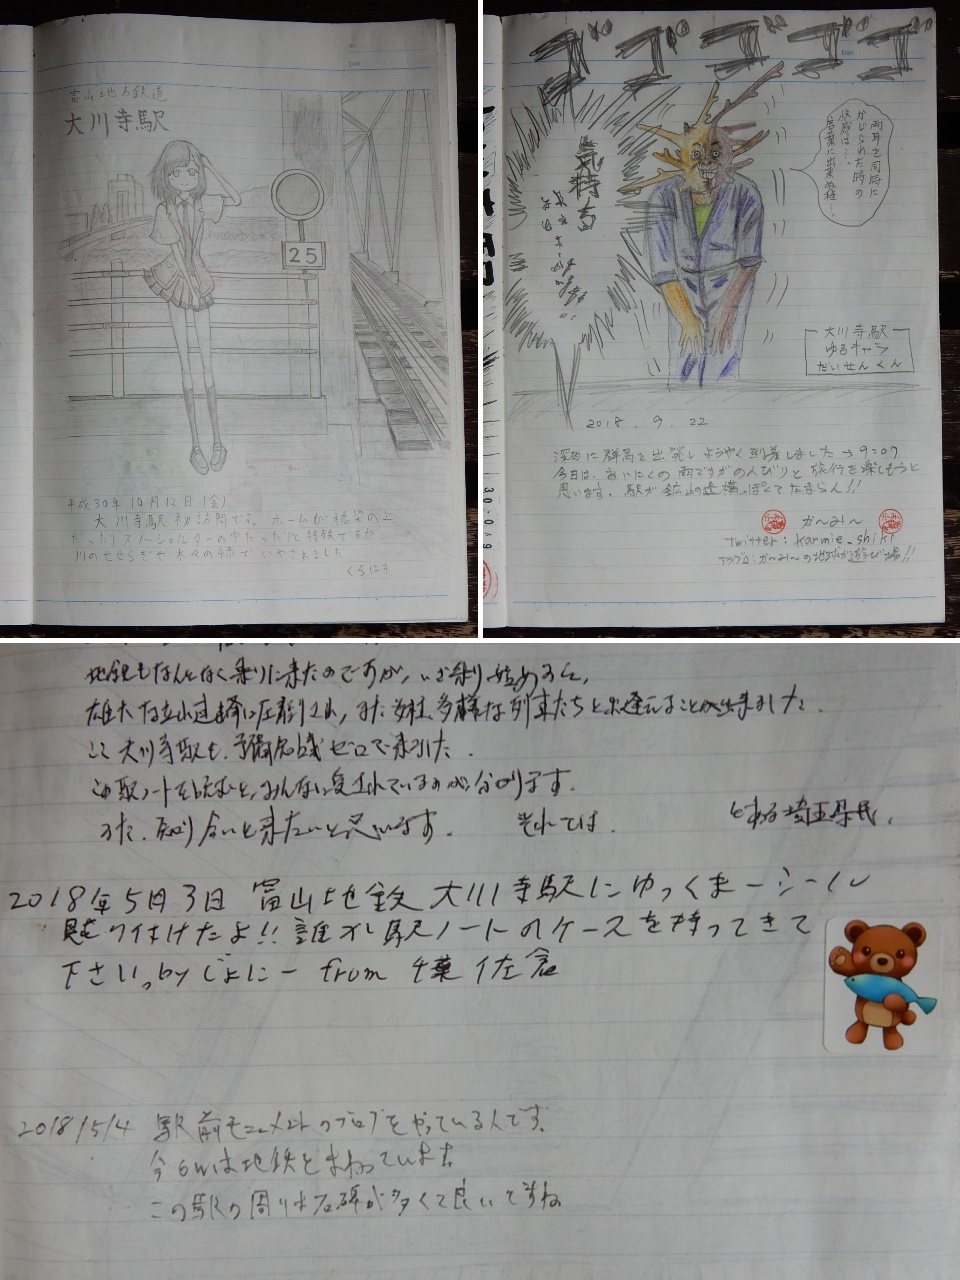 富山地方鉄道
大川寺駅
25
平成30年10月12日(金)
大川寺駅初訪問です。ホームが橋梁の上
だったりスノーシェルターの中だったりと特殊ですが
川のせせらぎや木々の緑でいやされました
くらにす
ゴゴゴゴゴ
気持ち
両耳を同時に
かじられた時の
快感は…
言葉に出来ん程…
大川寺駅
ゆるキャラ
だいせんくん
2018.9.22
深夜に群馬を出発しようやく到着しました→9:07
今日は、あいにくの雨ですがのんびりと旅行を楽しもうと
思います。駅が鉱山の遺構っぽくてたまらん!!
か〜み〜
Twitter:karmie_shiki
か〜み〜の地球が遊び場!!
地鉄もなんとなく乗りに来たのですが、いざ乗り始めると、
雄大な立山連峰に圧倒され、また多種多様な列車たちと出逢えることが出来ました。
ここ大川寺駅も、予備知識ゼロで来ました。
この駅ノートを読むと、みんなに愛されているのが分かります。
また、知り合いと来たいと思います。 それでは。 とある埼玉県民。
2018年5月3日 富山地鉄 大川寺駅にゆっくまーシール
貼り付けたよ!! 誰か駅ノートのケースを持ってきて
下さいっ。by じょにー from 千葉佐倉
2018/5/4 駅前モニュメントのブログをやっている人です。
今GWは地鉄をまわっています
この駅の周りは石碑が多くて良いですね